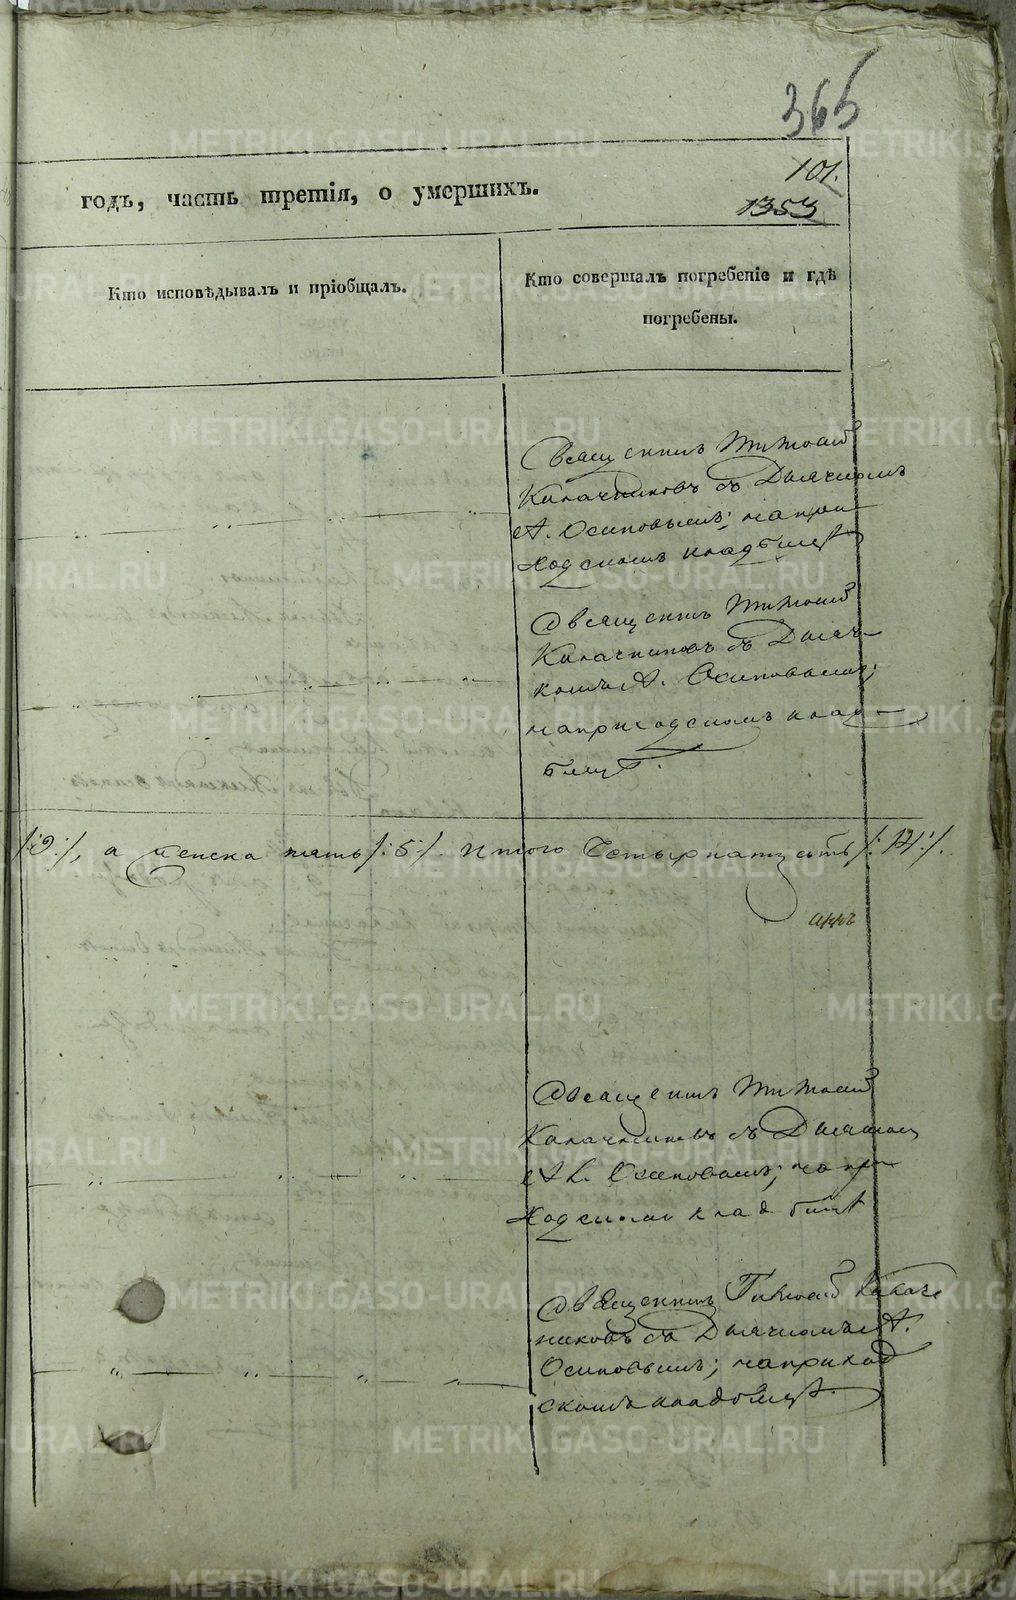 365
101.
1353
годъ, часть третія, о умершихъ.
Кто исповѣдывалъ и пріобщалъ.
Кто совершалъ погребеніе и гдѣ
погребены.
Священникъ Тимофей
Калачниковъ съ Дьячкомъ
А. Осиповымъ; на при-
ходскомъ кладбищѣ
Священникъ Тимофей
Калачниковъ съ Дьяч-
комъ А. Осиповымъ;
на приходскомъ клад-
бищѣ.
/:9:/, а женска пять /:5:/. Итого Четырнатцеть /:14:/.
Священникъ Тимофей
Калачниковъ съ Дьячкомъ
Ал. Осиповымъ; на при-
ходскомъ кладбищѣ
Священникъ Тимофей Калач-
никовъ съ Дьячкомъ А.
Осиповымъ; на приход-
скомъ кладбищѣ.
METRIKI.GASO-URAL.RU